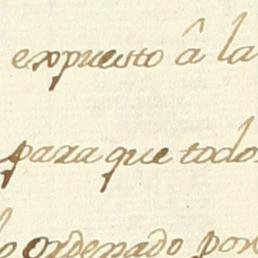 expuesto â la
para que todos
ordenado por